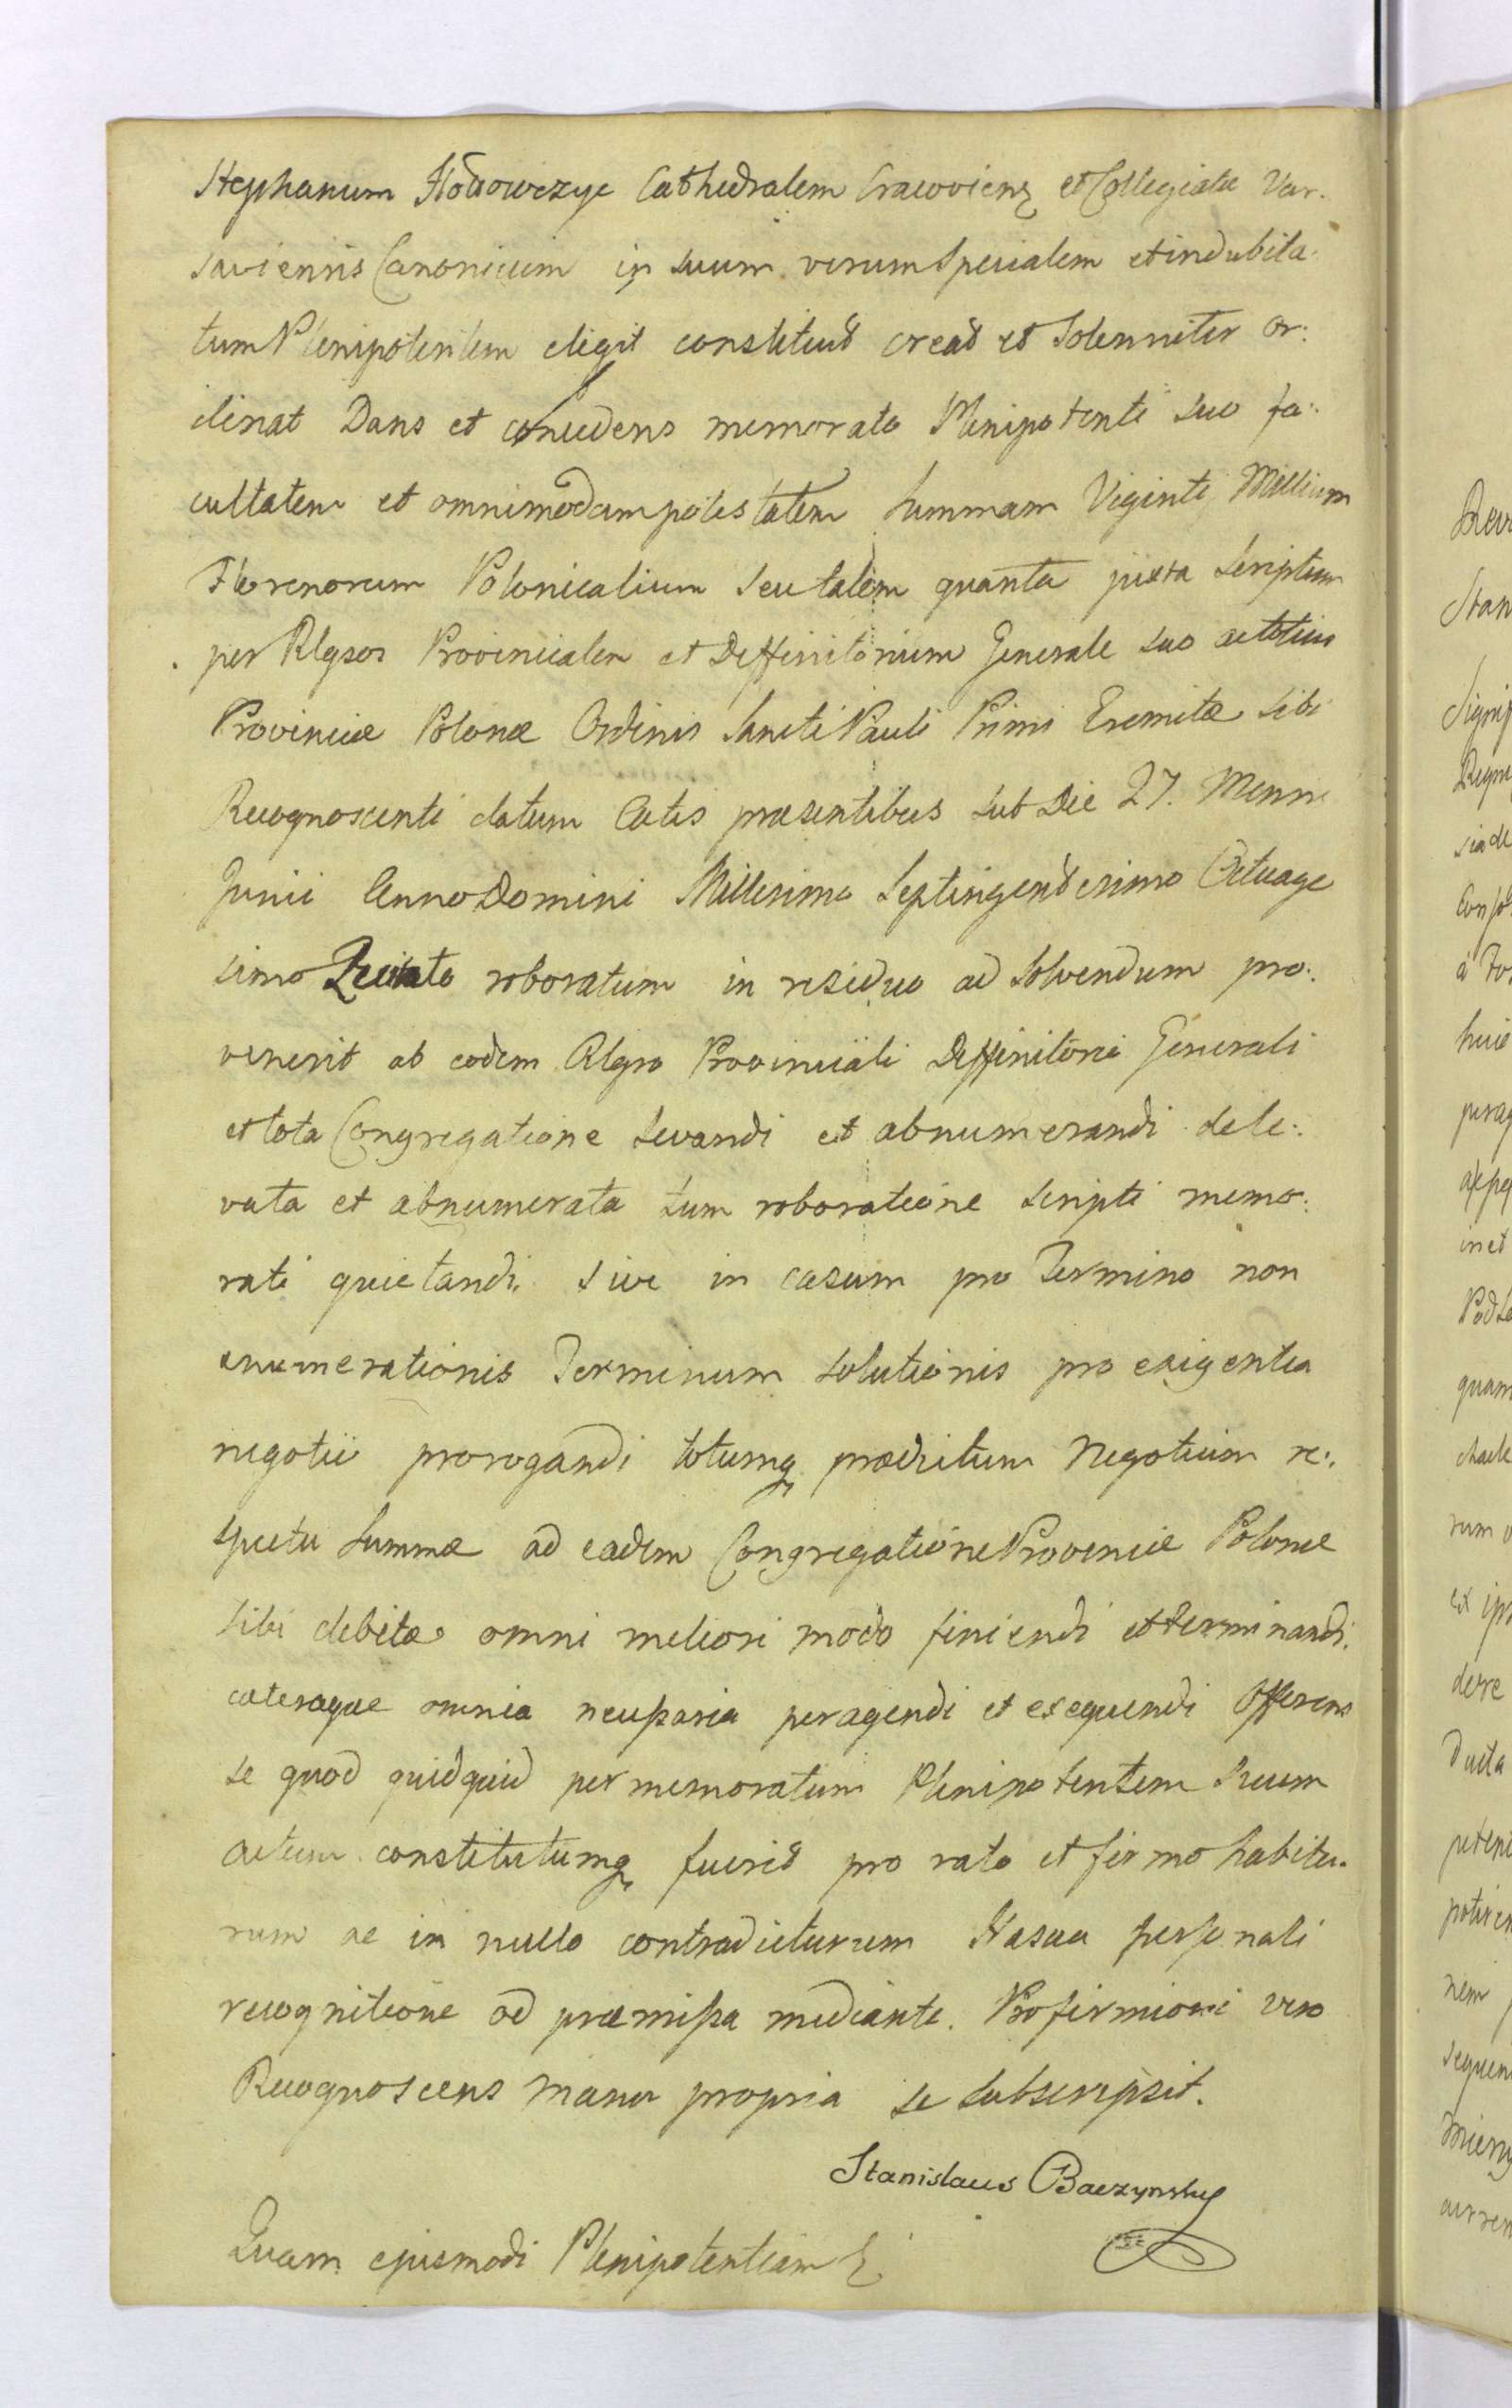 Stephanum Hołowczyc Cathedralem Cracovien et Collegiatæ Var:
saviensis Canonicum in suum verum specialem et indubita:
tum Plenipotentem eligit constituit creat et Solenniter or:
dinat Dans et concedens memorato Plenipotenti suo fa:
cultatem et omnimodam potestatem summam Viginti Millium
Florenorum Polonicalium seu talem quanta juxta Scriptum
per Rlgsos Provincialem et Deffinitorium Generale suo ac totius
Provinciæ Polonæ Ordinis Sancti Pauli Primi Eremitæ Sibi
Recognoscenti datum Actis præsentibus sub Die 27. Mensis
Junii Anno Domini Millesimo Septingentesimo Octuage
simo roboratum in residuo ad solvendum pro:
venerit ab eodem Rlgso Provinciali Deffinitorio Generali
et tota Congregatione levandi et abnumerandi de le:
vata et abnumerata tum roboratione scripti memo:
rati quietandi. sive in casum pro Termino non
enumerationis Terminum solutionis pro exigentia
negotii prorogandi totumq prædictum Negotium re:
spectu summæ ad eadem Congregatione Provinciæ Polonæ
sibi debitæ omni meliori modo finiendi et terminandi.
cæteraque omnia necessaria peragendi et exequendi Offerens
se quod quidquid per memoratum Plenipotentem suum
actum constitutumq fuerit pro rato et firmo habitu:
rum ac in nullo contradicturum personali
recognitione ad præmissa mediante. Pro firmiori vero
Recognoscens manu propria se subscripsit.
Stanislaus Baczynsky
Quam ejusmodi Plenipotentiam